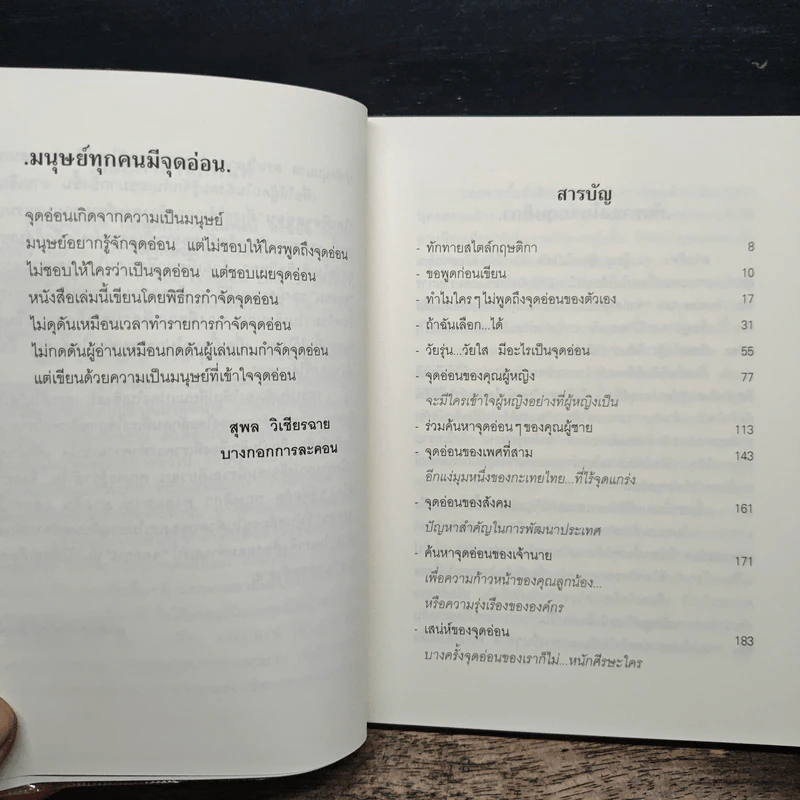 .มนุษย์ทุกคนมีจุดอ่อน.
จุดอ่อนเกิดจากความเป็นมนุษย์
มนุษย์อยากรู้จักจุดอ่อน แต่ไม่ชอบให้ใครพูดถึงจุดอ่อน
ไม่ชอบให้ใครว่าเป็นจุดอ่อน แต่ชอบเผยจุดอ่อน
หนังสือเล่มนี้เขียนโดยพิธีกรกำจัดจุดอ่อน
ไม่ดุดันเหมือนเวลาทำรายการกำจัดจุดอ่อน
ไม่กดดันผู้อ่านเหมือนกดดันผู้เล่นเกมกำจัดจุดอ่อน
แต่เขียนด้วยความเป็นมนุษย์ที่เข้าใจจุดอ่อน
สุพล วิเชียรฉาย
บางกอกการละคอน
สารบัญ
- ทักทายสไตล์กฤษติกา 8
- ขอพูดก่อนเขียน 10
- ทำไมใครๆไม่พูดถึงจุดอ่อนของตัวเอง 17
- ถ้าฉันเลือก...ได้ 31
- วัยรุ่น...วัยใส มีอะไรเป็นจุดอ่อน 55
- จุดอ่อนของคุณผู้หญิง 77
จะมีใครเข้าใจผู้หญิงอย่างที่ผู้หญิงเป็น
- ร่วมค้นหาจุดอ่อนๆของคุณผู้ชาย 113
- จุดอ่อนของเพศที่สาม 143
อีกแง่มุมหนึ่งของกะเทยไทย...ที่ไร้จุดแกร่ง
- จุดอ่อนของสังคม 161
ปัญหาสำคัญในการพัฒนาประเทศ
- ค้นหาจุดอ่อนของเจ้านาย 171
เพื่อความก้าวหน้าของคุณลูกน้อง...
หรือความรุ่งเรืองขององค์กร
- เสน่ห์ของจุดอ่อน 183
บางครั้งจุดอ่อนของเราก็ไม่...หนักศีรษะใคร